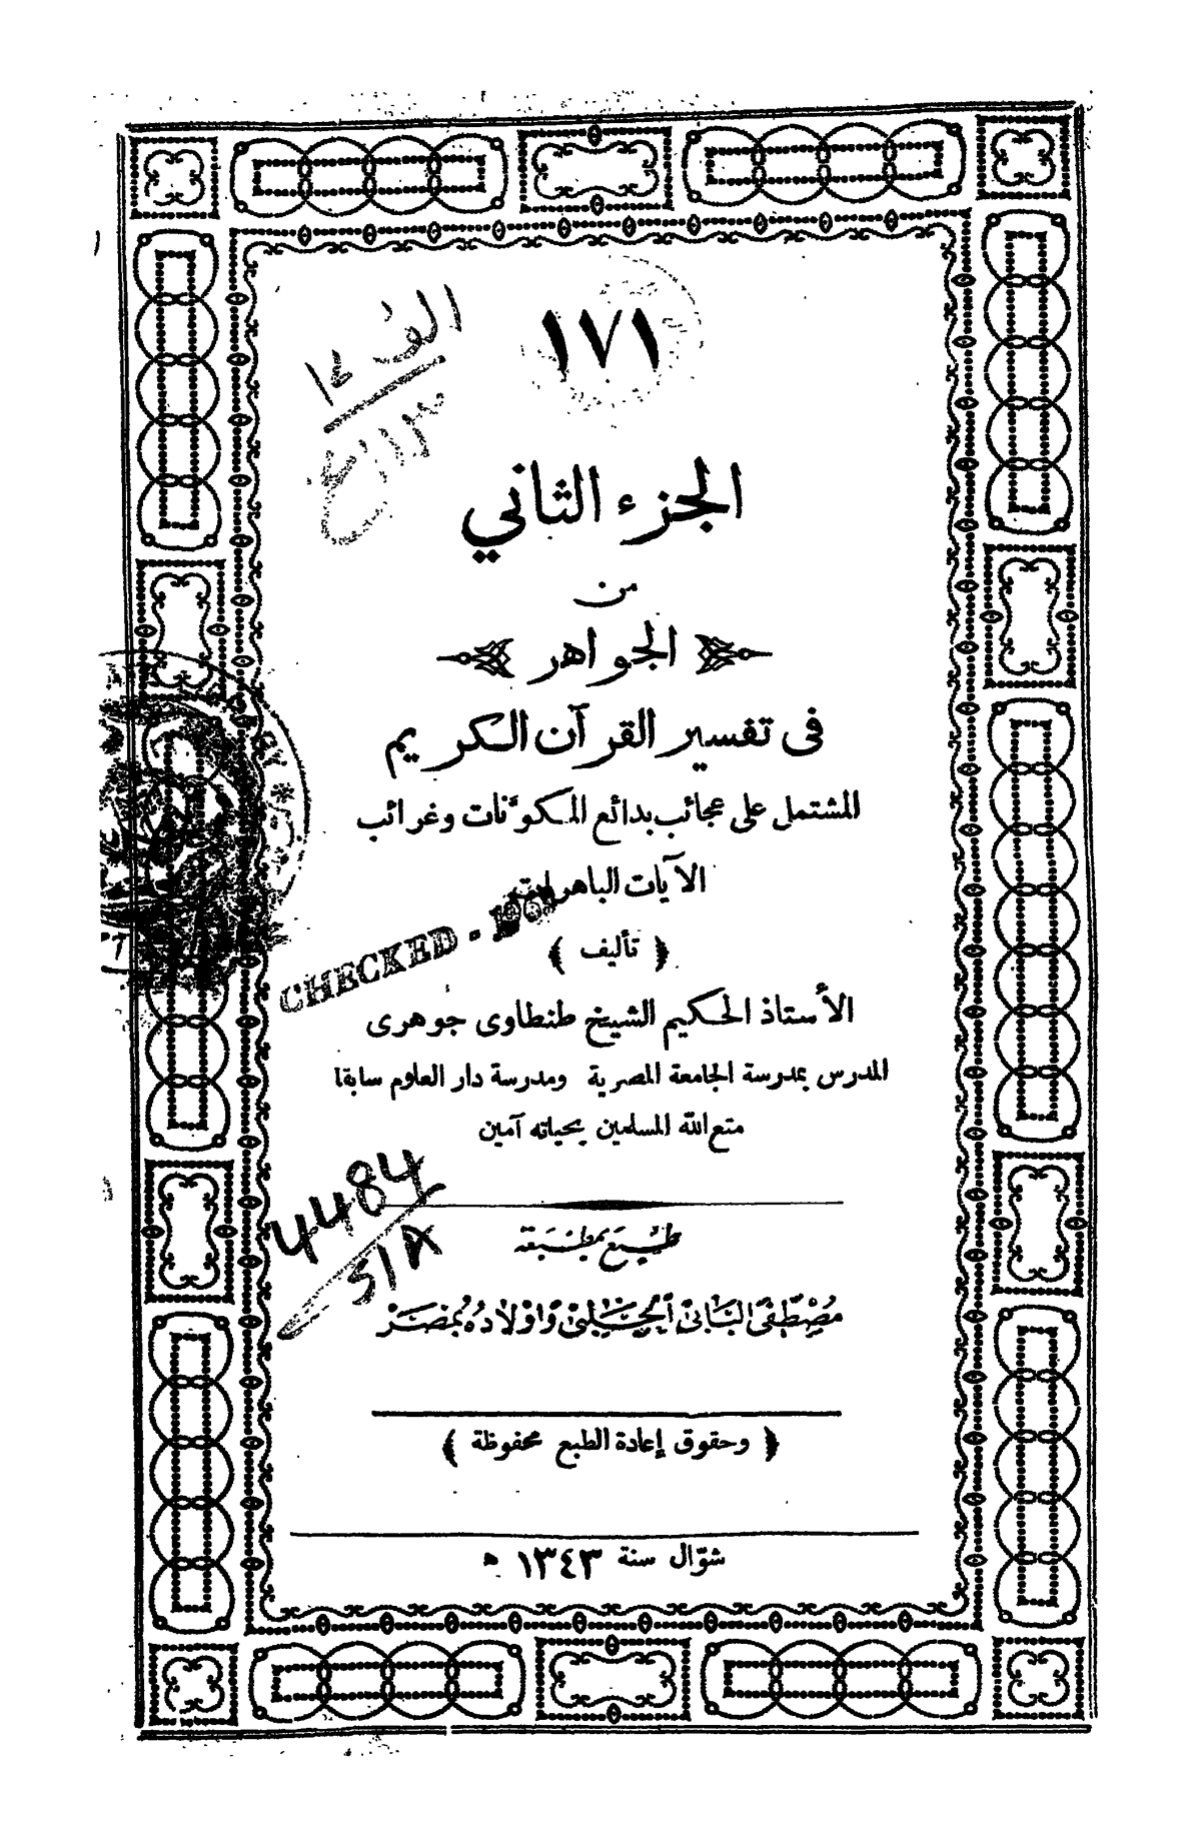 ١٧١
الف
١٢
الجزء الثاني
من
الجواهر
فى تفسير القرآن الكريم
المشتمل على عجائب بدائع المكوّنات وغرائب
الآيات الباهرات
CHECKED -
﴿ تأليف ﴾
الأستاذ الحكيم الشيخ طنطاوى جوهرى
المدرس بمدرسة الجامعة المصرية ومدرسة دار العلوم سابقا
متع الله المسلمين بحياته آمين
4484
طُبِعَ بمطبَعَة
مُصْطَفَى البَابِىْ الْحَلَبِىْ وَاوْلَادُهُ بِمِصْرَ
﴿ وحقوق إعادة الطبع محفوظة ﴾
شوّال سنة ١٣٤٣ ه